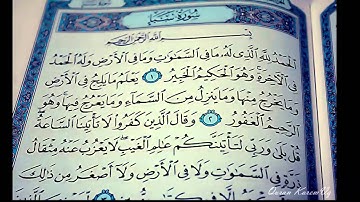 سُورَةُ سَبَإٍ
بِسْمِ اللَّهِ الرَّحْمَٰنِ الرَّحِيمِ
الْحَمْدُ لِلَّهِ الَّذِي لَهُ مَا فِي السَّمَاوَاتِ وَمَا فِي الْأَرْضِ وَلَهُ الْحَمْدُ
فِي الْآخِرَةِ وَهُوَ الْحَكِيمُ الْخَبِيرُ ١ يَعْلَمُ مَا يَلِجُ فِي الْأَرْضِ
وَمَا يَخْرُجُ مِنْهَا وَمَا يَنزِلُ مِنَ السَّمَاءِ وَمَا يَعْرُجُ فِيهَا وَهُوَ
الرَّحِيمُ الْغَفُورُ ٢ وَقَالَ الَّذِينَ كَفَرُوا لَا تَأْتِينَا السَّاعَةُ
قُلْ بَلَىٰ وَرَبِّي لَتَأْتِيَنَّكُمْ عَالِمِ الْغَيْبِ لَا يَعْزُبُ عَنْهُ مِثْقَالُ
ذَرَّةٍ فِي السَّمَاوَاتِ وَلَا فِي الْأَرْضِ وَلَا أَصْغَرُ مِن ذَٰلِكَ